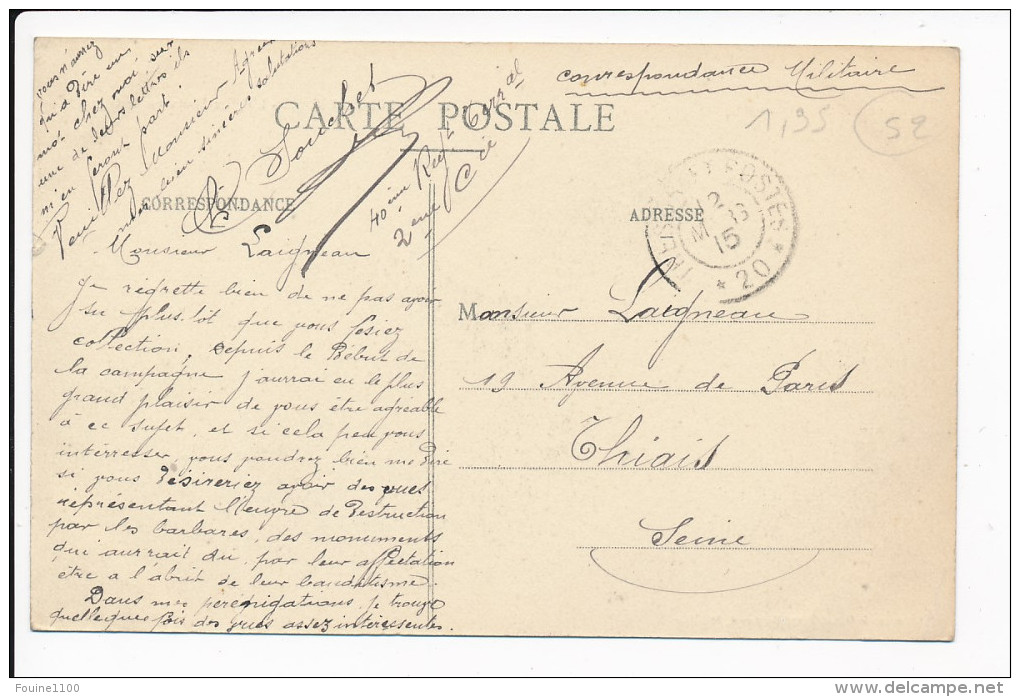 correspondance Militaire
CARTE POSTALE
1,95
52
CORRESPONDANCE
ADRESSE
TRESOR ET POSTES
15
* 20 *
Monsieur Laigneau
Je regrette bien de ne pas avoir
su plus tôt que vous fesiez
collection, depuis le Début de
la campagne j'aurrai eu le plus
grand plaisir de vous être agréable
à ce sujet, et si cela peu vous
intérresser, vous voudrez bien me Dire
si vous Désireriez avoir des vues
représentant l'œuvre de Destruction
par les barbares, des monuments
qui aurrait du, par leur affectation
être a l'abrit de leur banditisme.
Dans mes peregrigations, je trouve
quelleque fois des vues assez intéressentes.
vous n'aurez
qu'à Dire un
mot chez moi, sur
une de leurs lettres ils
m'en feront part.
Veuillez Monsieur Agréer
mes bien sincères salutations
40ème Regt Territal
2eme Cie
Monsieur Laigneau
19 Avenue de Paris
Thiais
Seine
Fouine1100
delcampe.net